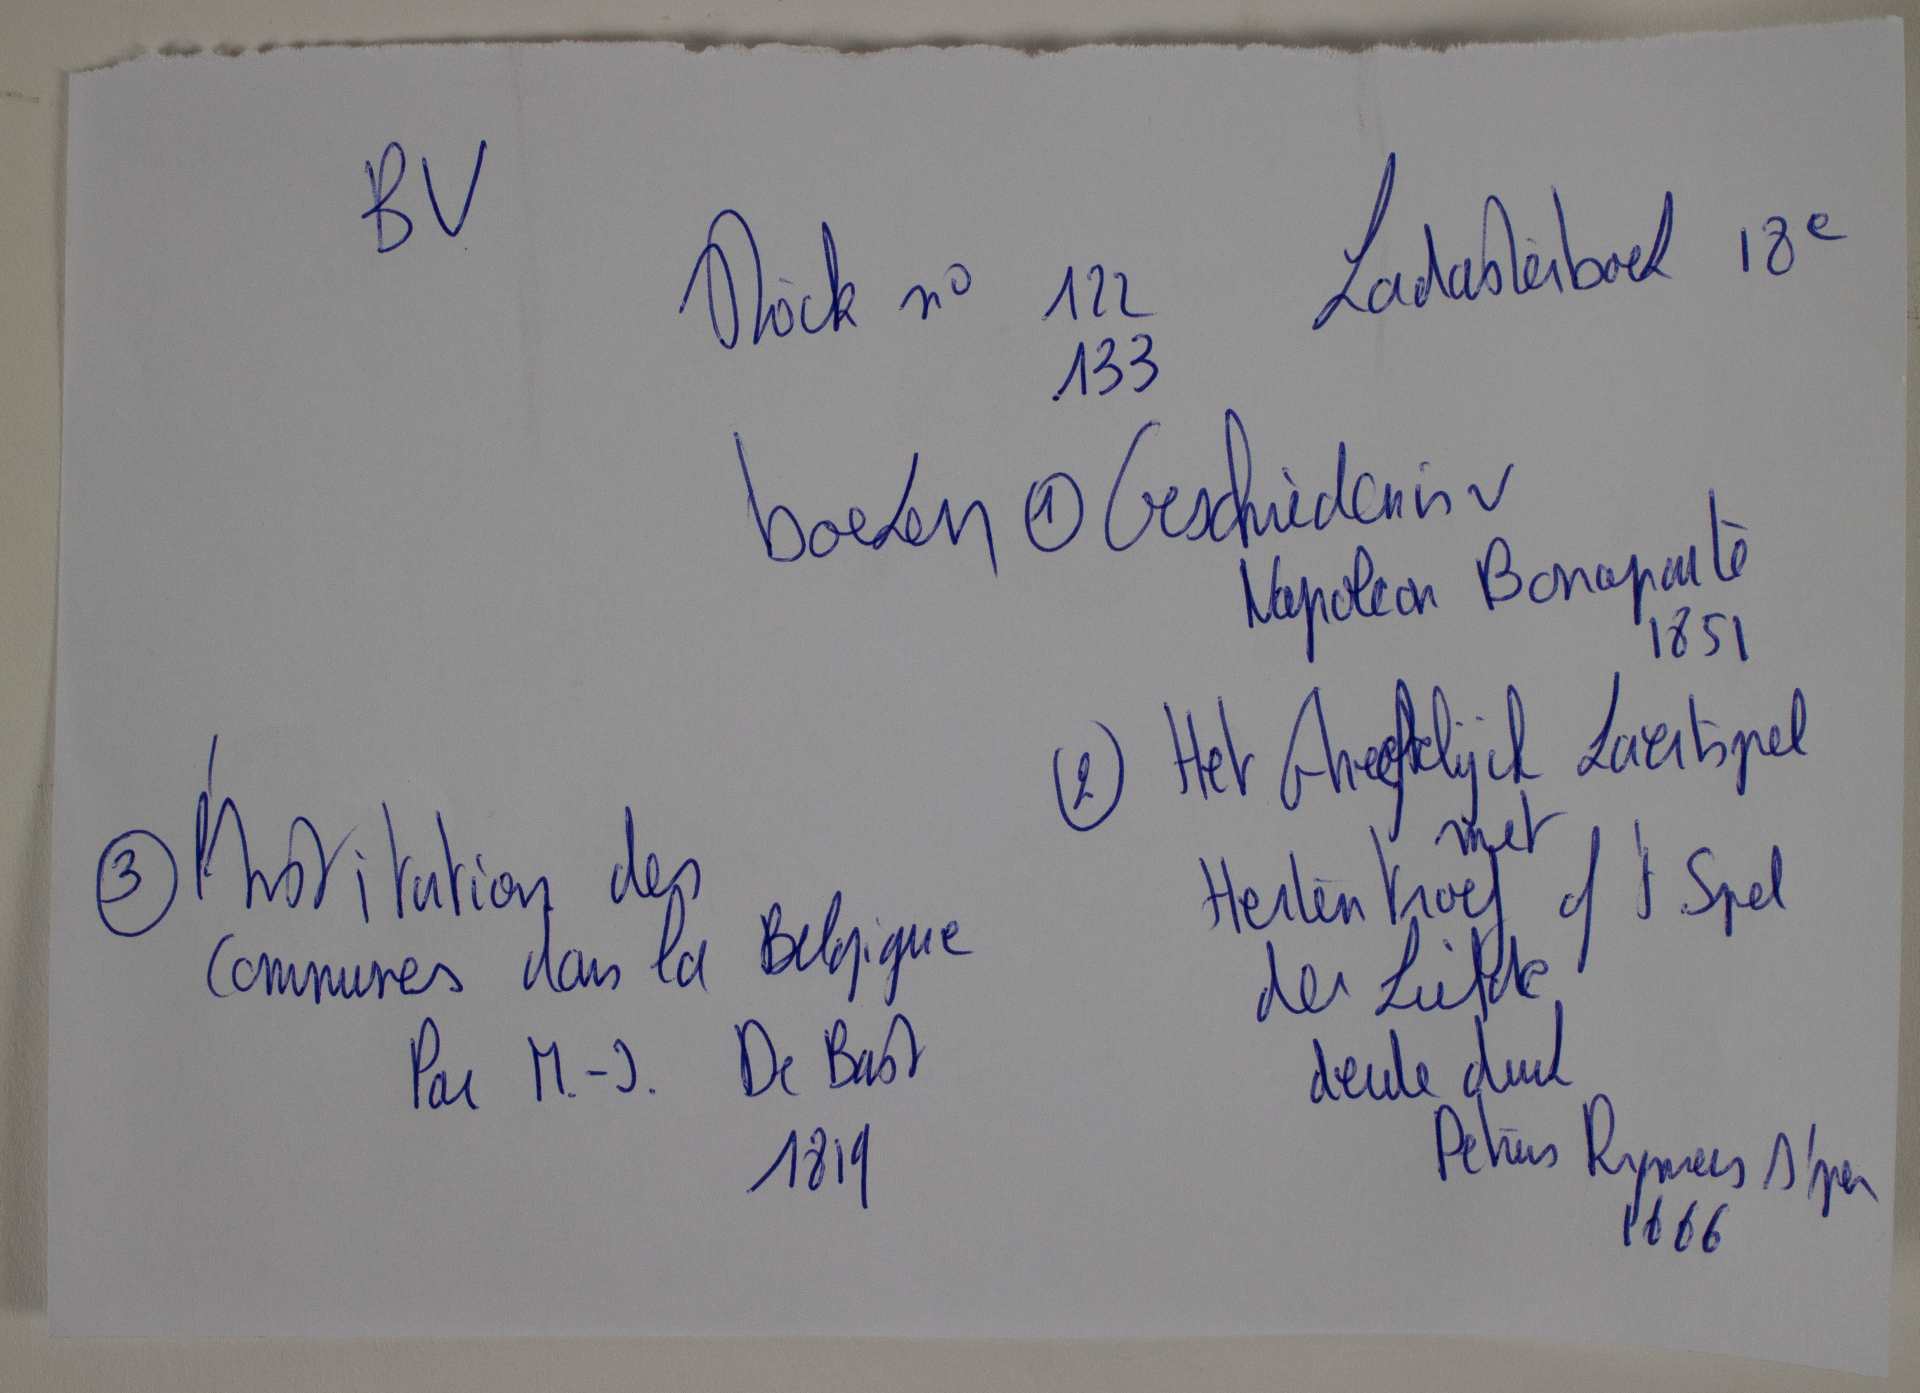 BV
Stock nº 122 Kadasterboek 18e
133
boeken ① Geschiedenis v
Napoleon Bonaparte
1851
② Het Kaertspel
met
Herten troef of 't Spel
der Liefde
derde druk
Petrus Rymers
1666
③ l'Institution des
Communes dans la Belgique
Par M.-J. De Bast
1819